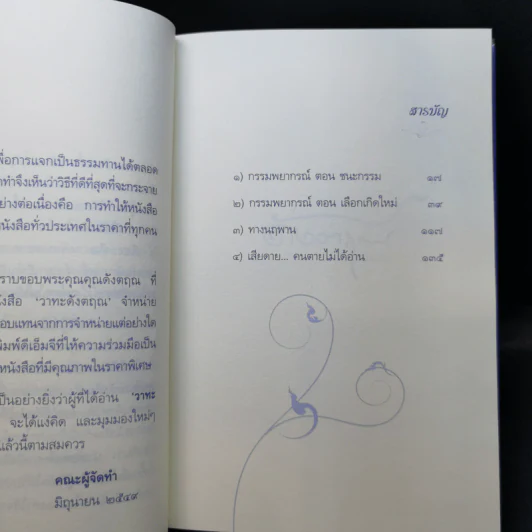 พื่อการแจกเป็นธรรมทานได้ตลอด
ทำจึงเห็นว่าวิธีที่ดีที่สุดที่จะกระจาย
ย่างต่อเนื่องคือ การทำให้หนังสือ
นังสือทั่วประเทศในราคาที่ทุกคน
ราบขอบพระคุณคุณดังตฤณ ที่
นังสือ ‘วาทะดังตฤณ’ จำหน่าย
อบแทนจากการจำหน่ายแต่อย่างใด
พิมพ์ดีเอ็มจีที่ให้ความร่วมมือเป็น
หนังสือที่มีคุณภาพในราคาพิเศษ
ป็นอย่างยิ่งว่าผู้ที่ได้อ่าน ‘วาทะ
จะได้แง่คิด และมุมมองใหม่ๆ
แล้วนี้ตามสมควร
คณะผู้จัดทำ
มิถุนายน ๒๕๔๙
สารบัญ
๑) กรรมพยากรณ์ ตอน ชนะกรรม ๑๗
๒) กรรมพยากรณ์ ตอน เลือกเกิดใหม่ ๓๙
๓) ทางนฤพาน ๑๑๗
๔) เสียดาย... คนตายไม่ได้อ่าน ๑๓๕